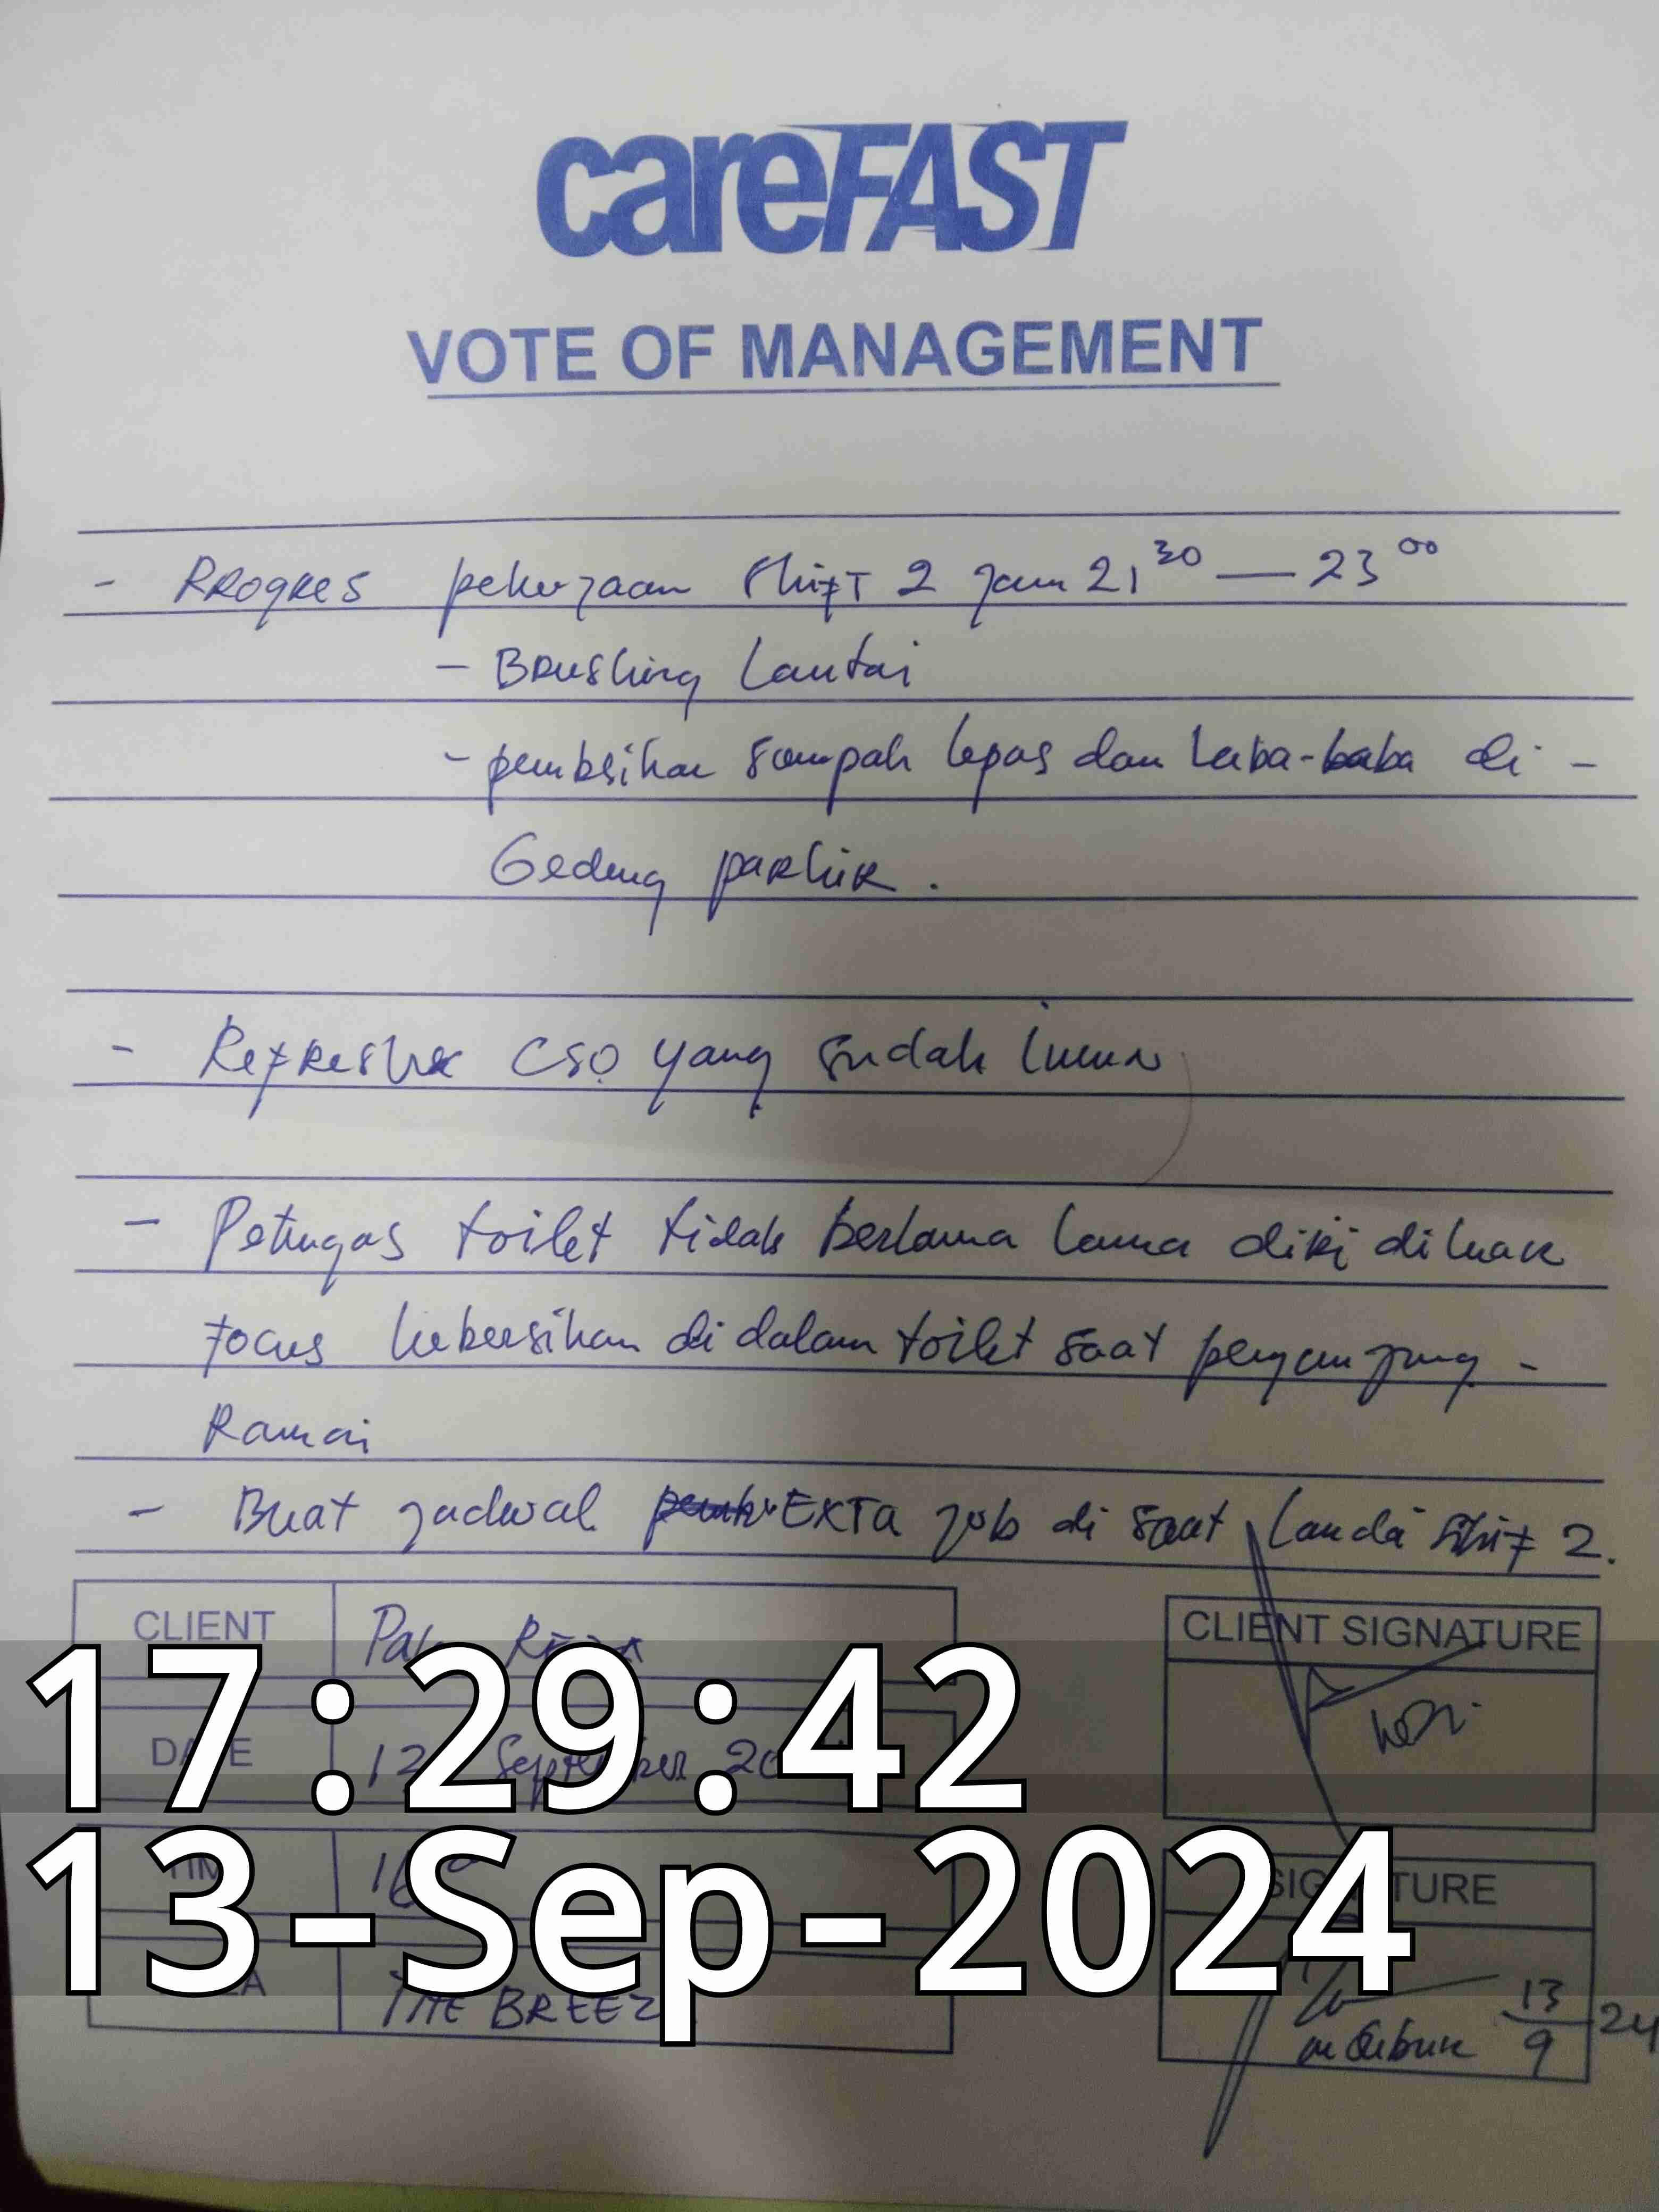 careFAST
VOTE OF MANAGEMENT
- PROgRes pekerjaan Shift 2 jam 21 30 — 23 00
- BRushing Lantai
- pembsihan sampah lepas dan laba-baba di -
Gedung parkir.
- RefResher CSO yang sudah
- Petugas toilet tidak berlama lama diri diluar
focus kebersihan di dalam toilet saat pengunjung -
Ramai
- Buat jadwal EXTA job di saat Landai shif 2.
CLIENT
CLIENT SIGNATURE
DATE
September
THE BREEZ
SIGNATURE
13/9 24
17:29:42
13-Sep-2024